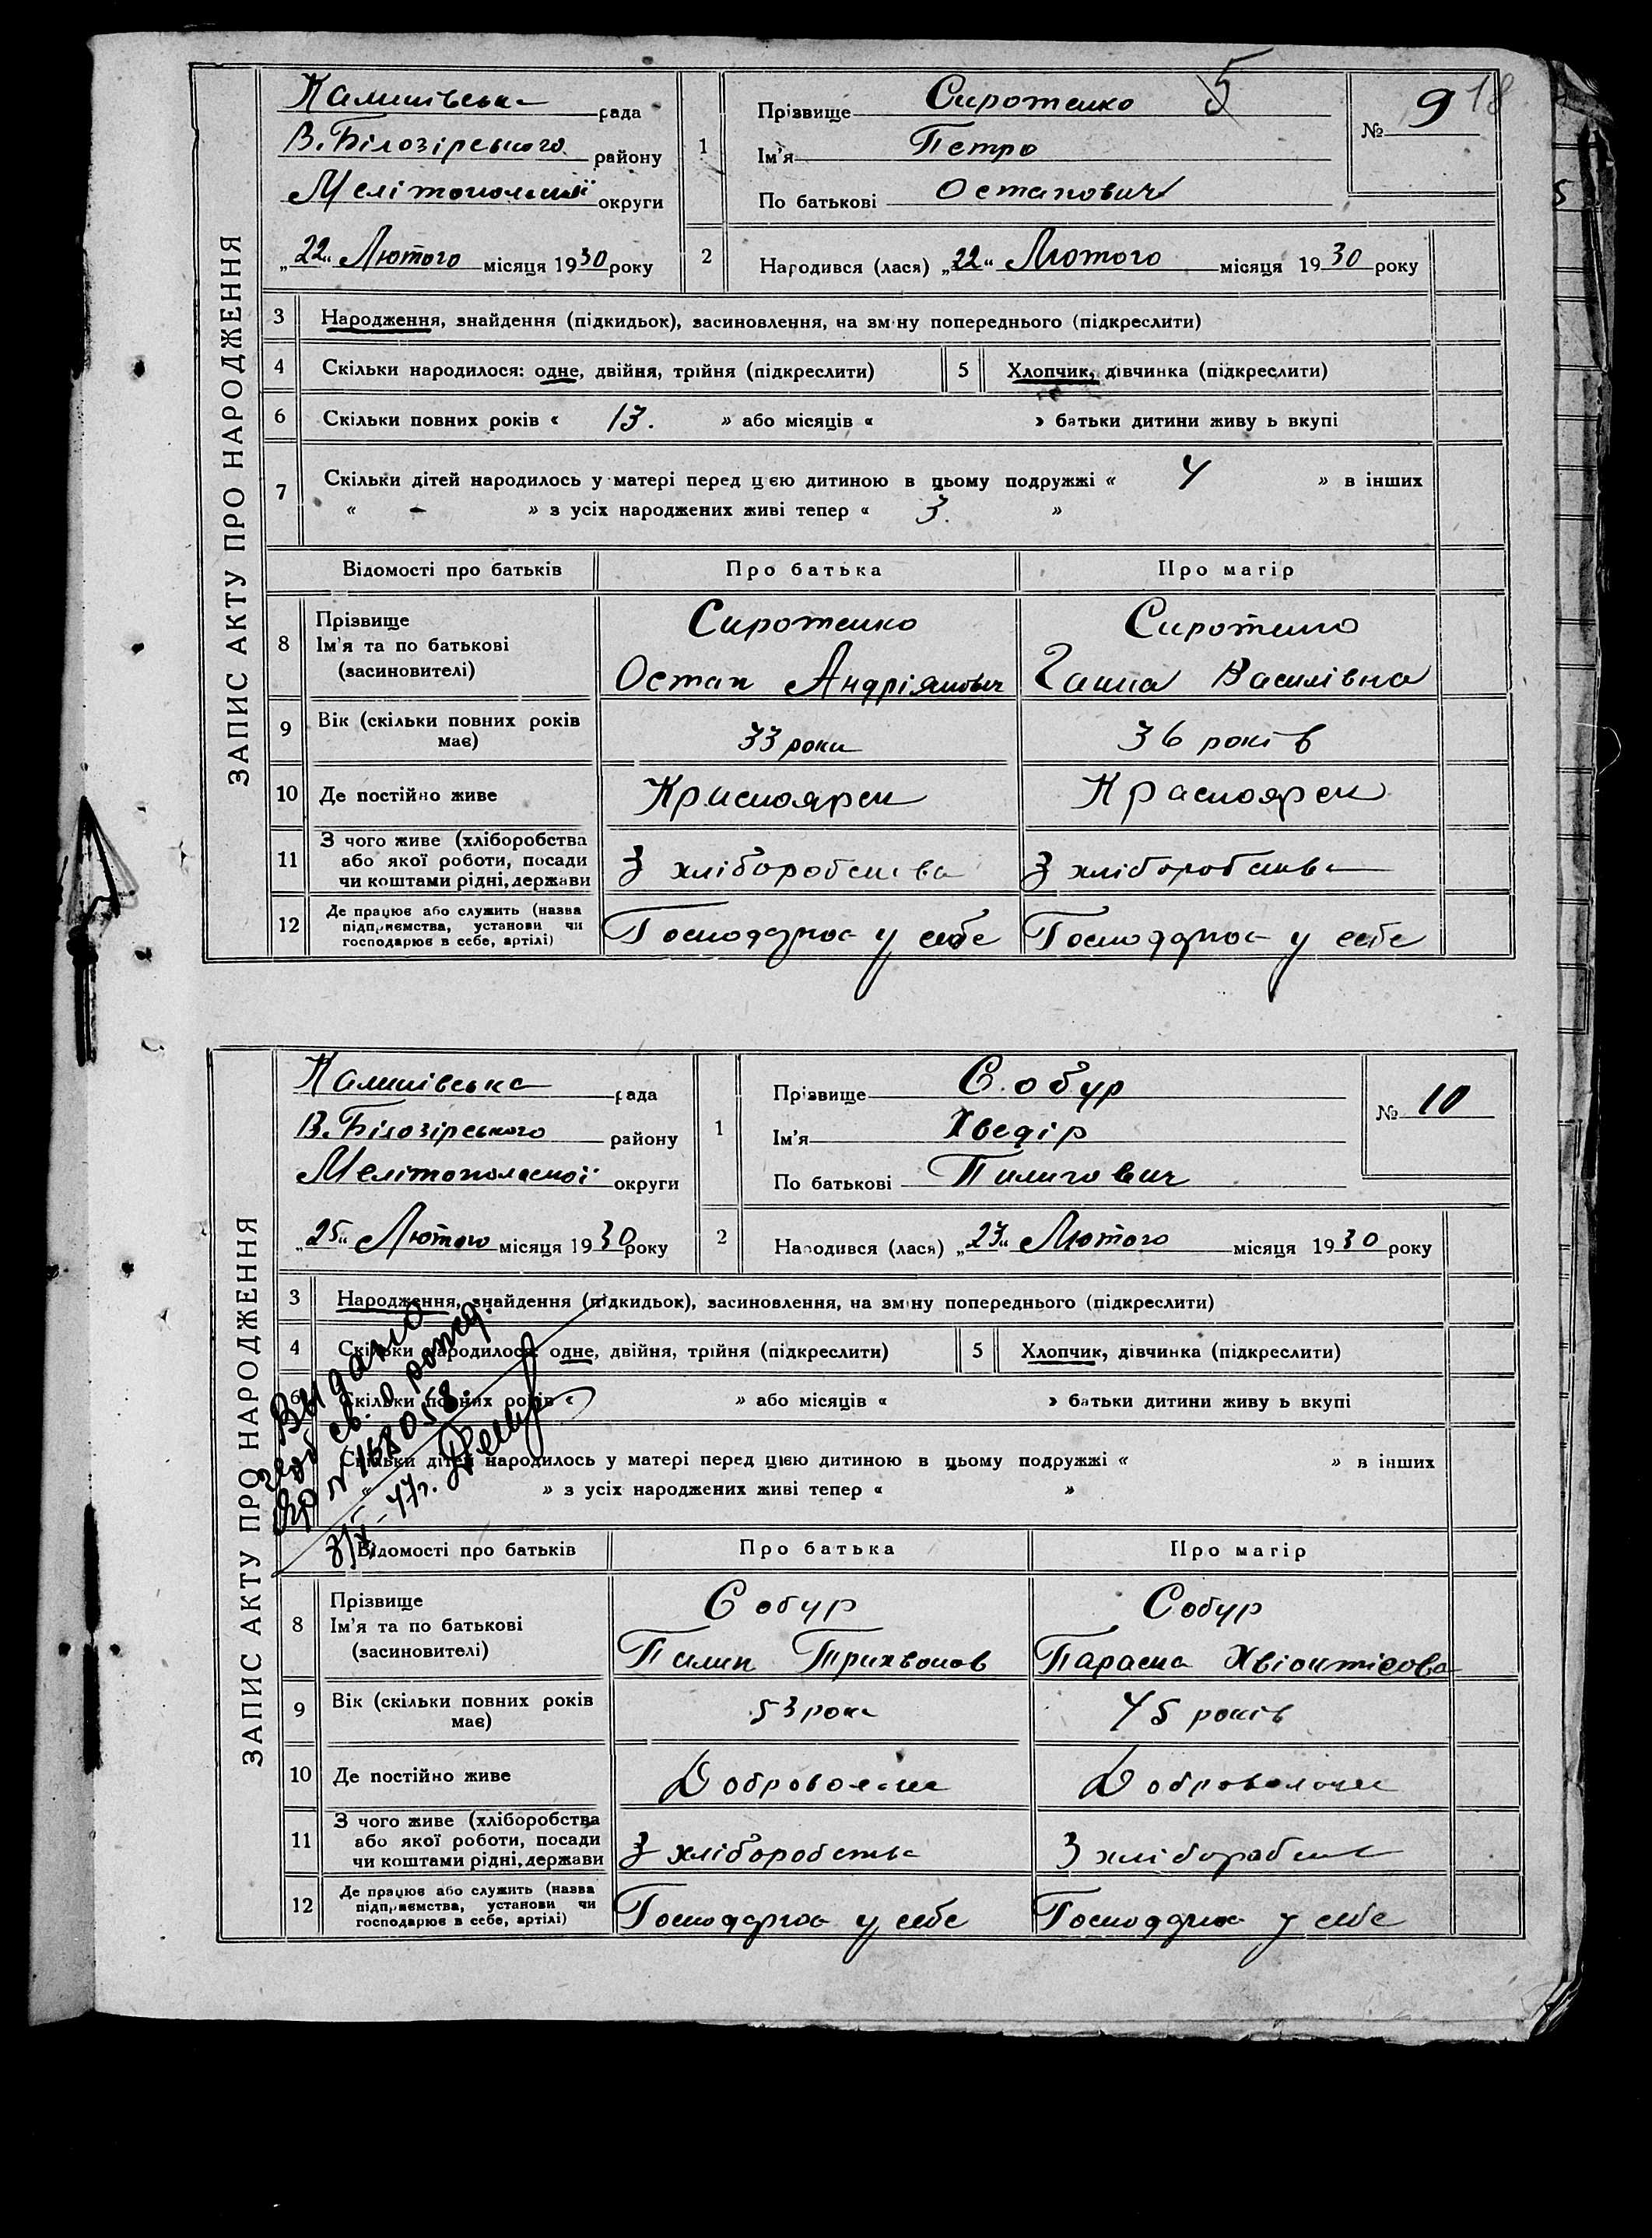 ЗАПИС АКТУ ПРО НАРОДЖЕННЯ
рада
В. Білозірського району
Мелітопольської округи
„22“ Лютого місяця 1930 року
1
Прізвище Сиротенко
5
Ім'я Петро
По батькові Остапович
№ 9
18
2
Народився (лася) „22“ Лютого місяця 1930 року
3 Народження, знайдення (підкидьок), засиновлення, на зміну попереднього (підкреслити)
4 Скільки народилося: одне, двійня, трійня (підкреслити)
5 Хлопчик, дівчинка (підкреслити)
6 Скільки повних років « 13. » або місяців « » батьки дитини живу ь вкупі
7 Скільки дітей народилось у матері перед цією дитиною в цьому подружжі « 4 » в інших
« - » з усіх народжених живі тепер « 3. »
Відомості про батьків Про батька Про матір
8 Прізвище
Ім'я та по батькові
(засиновителі)
Сиротенко
Остап Андріянович
Сиротенко
Ганна Василівна
9 Вік (скільки повних років
має)
33 роки
36 років
10 Де постійно живе
Красноярск
Красноярск
11 З чого живе (хліборобства
або якої роботи, посади
чи коштами рідні, держави
З хліборобства
З хліборобства
12 Де працює або служить (назва
підприємства, установи чи
господарює в себе, артілі)
Господарює у себе
Господарює у себе
ЗАПИС АКТУ ПРО НАРОДЖЕННЯ
рада
В. Білозірського району
Мелітопольської округи
„25“ Лютого місяця 1930 року
1
Прізвище Собур
Ім'я Хведір
По батькові Пилипович
№ 10
2
Народився (лася) „23“ Лютого місяця 1930 року
3 Народження, знайдення (підкидьок), засиновлення, на зміну попереднього (підкреслити)
4 Скільки народилося: одне, двійня, трійня (підкреслити)
5 Хлопчик, дівчинка (підкреслити)
6 Скільки повних років « » або місяців « » батьки дитини живу ь вкупі
Скільки дітей народилось у матері перед цією дитиною в цьому подружжі « » в інших
« » з усіх народжених живі тепер « »
Выдано
св. о рожд.
№ 168058.
47г.
Відомості про батьків Про батька Про матір
8 Прізвище
Ім'я та по батькові
(засиновителі)
Собур
Пилип Трихвонов
Собур
Параска
9 Вік (скільки повних років
має)
53 рок
45 років
10 Де постійно живе
11 З чого живе (хліборобства
або якої роботи, посади
чи коштами рідні, держави
З хліборобства
З хліборобства
12 Де працює або служить (назва
підприємства, установи чи
господарює в себе, артілі)
Господарює у себе
Господарює у себе